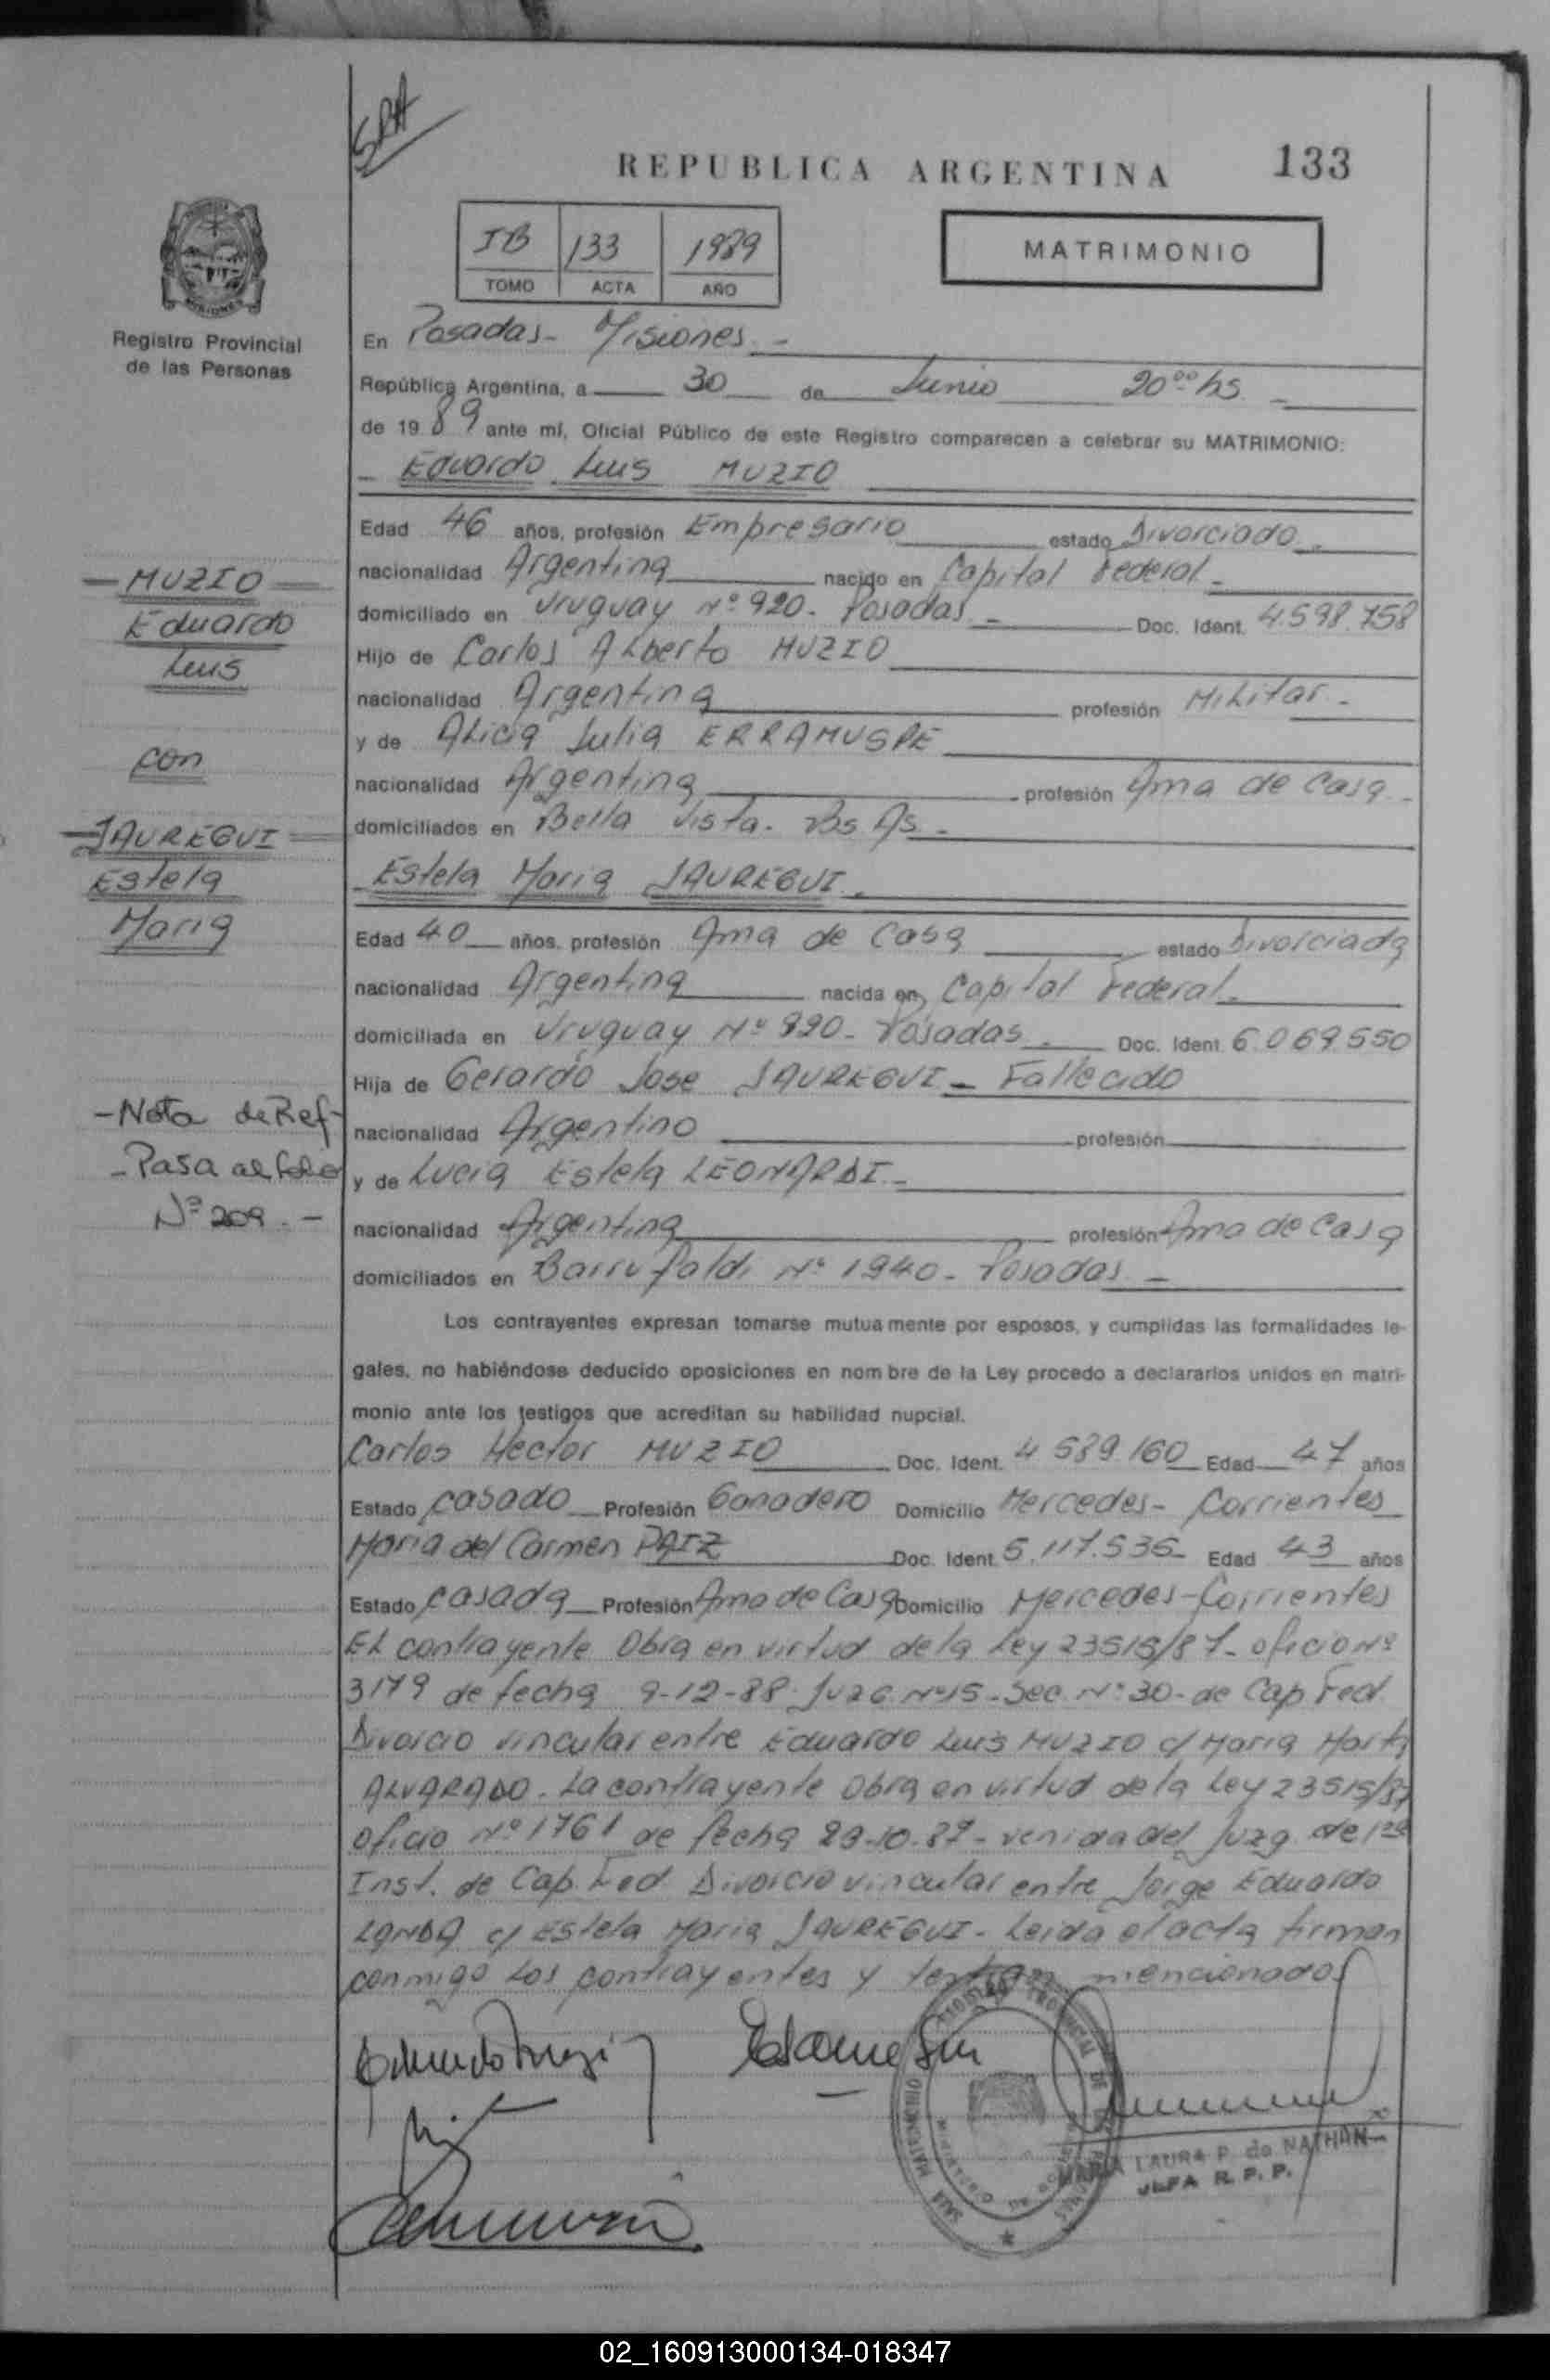 SRA
REPUBLICA ARGENTINA 133
IB 133 1989
TOMO ACTA AÑO
MATRIMONIO
Registro Provincial
de las Personas
En Posadas - Misiones. -
República Argentina, a 30 de Junio 20 00 hs. -
de 19 89 ante mí, Oficial Público de este Registro comparecen a celebrar su MATRIMONIO:
- Eduardo Luis MUZIO
Edad 46 años, profesión Empresario estado Divorciado -
nacionalidad Argentina nacido en Capital Federal -
domiciliado en Uruguay Nº 920 - Posadas - Doc. Ident. 4.598.758
Hijo de Carlos Alberto MUZIO
nacionalidad Argentina profesión Militar -
y de Alicia Julia ERRAMUSPE
nacionalidad Argentina profesión Ama de Casa -
domiciliados en Bella Vista - Bs As -
- Estela Maria JAUREGUI -
Edad 40 años, profesión Ama de Casa estado Divorciada
nacionalidad Argentina nacida en Capital Federal -
domiciliada en Uruguay Nº 920 - Posadas - Doc. Ident. 6.069.550
Hija de Gerardo Jose JAUREGUI - Fallecido
nacionalidad Argentino profesión
y de Lucia Estela LEONARDI -
nacionalidad Argentina profesión Ama de Casa
domiciliados en Barrufaldi Nº 1940 - Posadas -
Los contrayentes expresan tomarse mutuamente por esposos, y cumplidas las formalidades le-
gales, no habiéndose deducido oposiciones en nombre de la Ley procedo a declararlos unidos en matri-
monio ante los testigos que acreditan su habilidad nupcial.
Carlos Hector MUZIO Doc. Ident. 4.589.160 Edad 47 años
Estado Casado Profesión Ganadero Domicilio Mercedes - Corrientes
Maria del Carmen PAIZ Doc. Ident. 5.117.535 Edad 43 años
Estado Casada Profesión Ama de Casa Domicilio Mercedes - Corrientes
El contrayente Obra en virtud de la Ley 23515/87 - oficio Nº
3179 de fecha 9-12-88 Juzg Nº 15 - Sec. Nº 30 - de Cap Fed.
Divorcio vincular entre Eduardo Luis MUZIO c/ Maria Marta
ALVARADO - La contrayente Obra en virtud de la Ley 23515/87
oficio Nº 1761 de fecha 29-10-87 - venida del Juzg de 1ra
Inst. de Cap. Fed Divorcio vincular entre Jorge Eduardo
LANDA c/ Estela Maria JAUREGUI - Leida el acta firman
conmigo los contrayentes y testigos mencionados
MARIA LAURA P. de NATHAN
JEFA R. P. P.
- MUZIO -
Eduardo
Luis
con
- JAUREGUI -
Estela
Maria
- Nota de Ref -
- Pasa al folio
Nº 209 . -
02_160913000134-018347